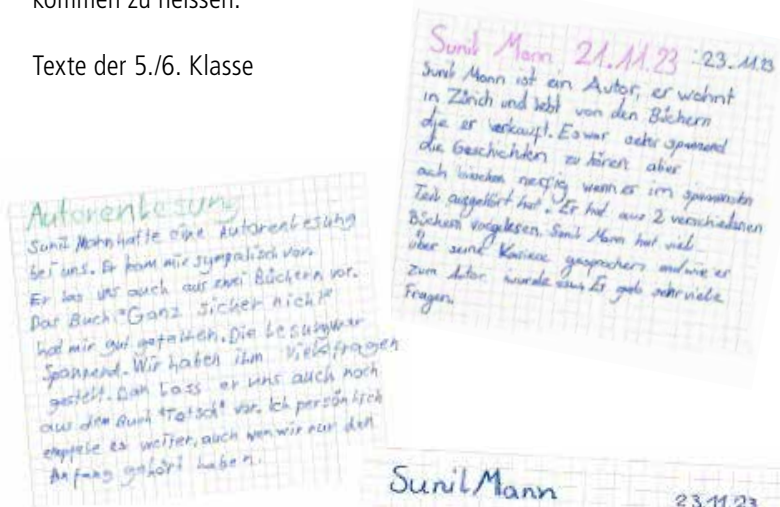 kommen zu heissen.
Texte der 5./6. Klasse
Sunil Mann 21.11.23 23.11.23
Sunil Mann ist ein Autor, er wohnt
in Zürich und lebt von den Büchern
die er verkauft. Es war sehr spannend
die Geschichten zu hören aber
auch bisschen nerfig wenn er im spannensten
Teil aufgehört hat. Er hat aus 2 verschiedenen
Büchern vorgelesen. Sunil Mann hat viel
über seine gesprochen und wie er
zum Autor wurde Es gab sehr viele
Fragen.
Autorenlesung
Sunil Mann hatte eine Autorenlesung
bei uns. Er kam mir sympatisch vor.
Er las uns auch aus zwei Büchern vor.
Das Buch "Ganz sicher nicht"
hat mir gut gefallen. Die Lesung war
Spannend. Wir haben ihm viele fragen
gestellt. Dan lass er uns auch noch
aus dem Buch "Totsch" vor. Ich persönlich
empfele es weiter, auch wen wir nur den
Anfang gehört haben.
Sunil Mann
23.11.23